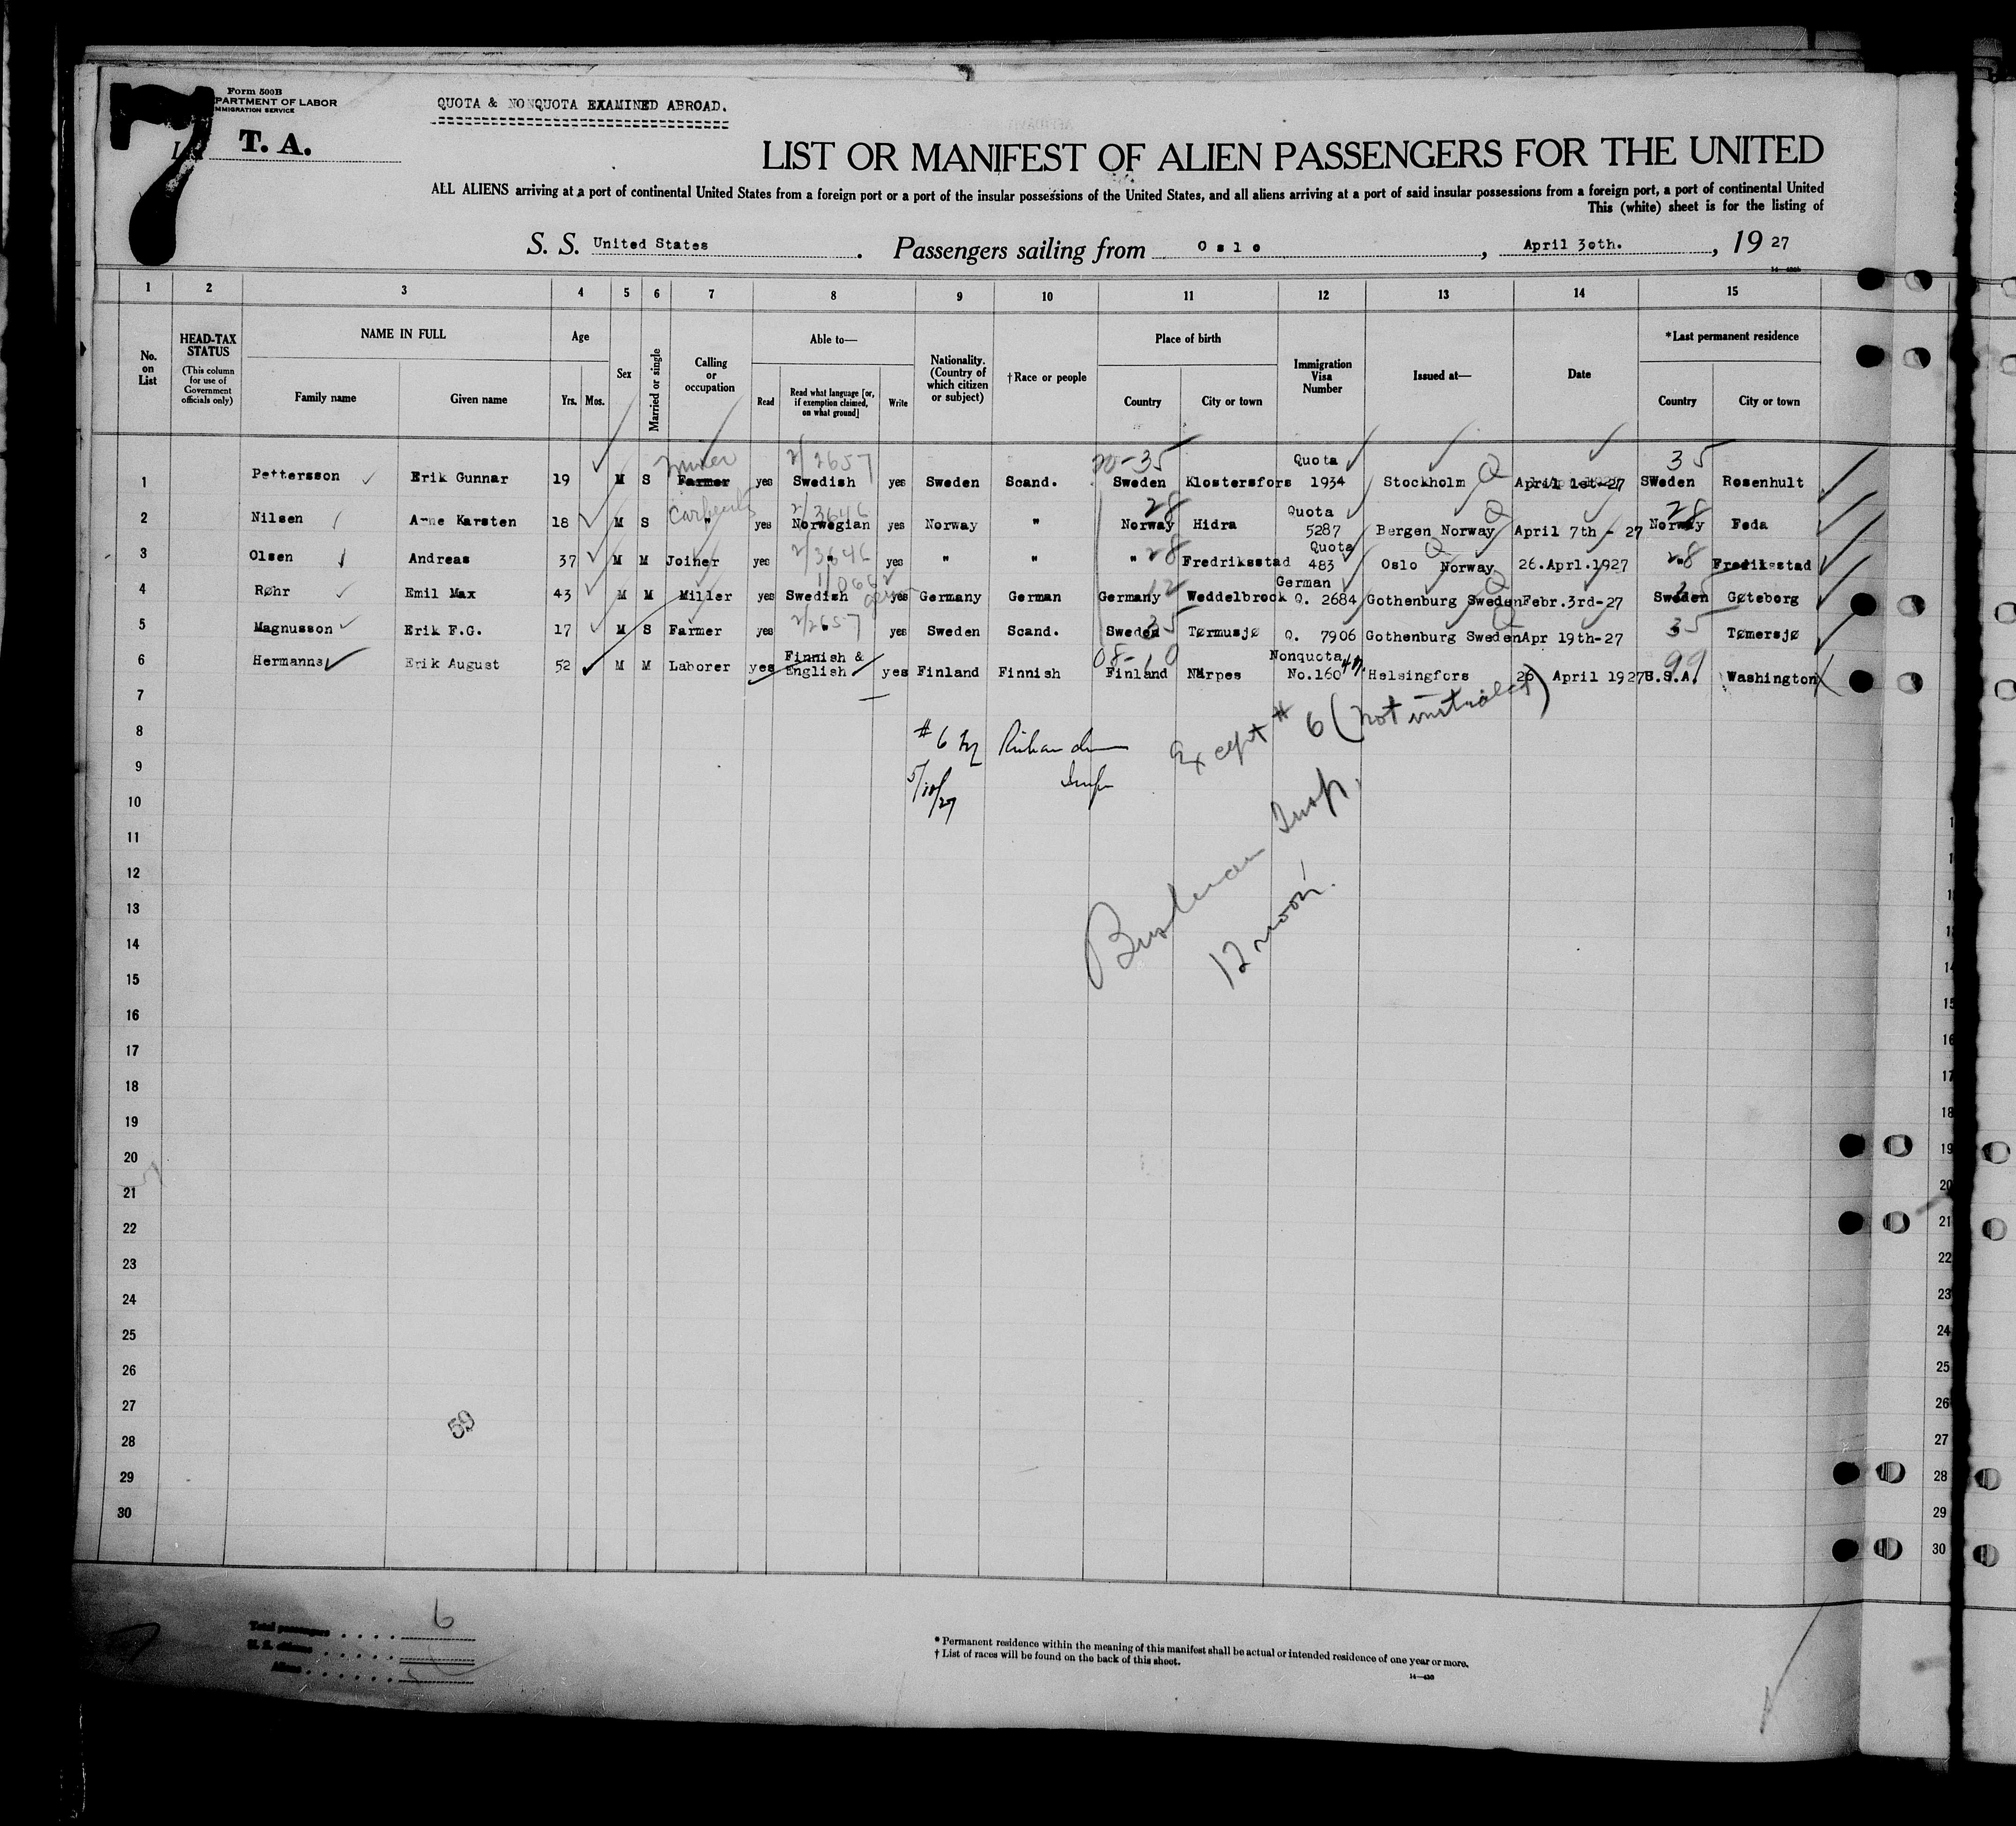 7
Form 500B
PARTMENT OF LABOR
IMMIGRATION SERVICE
T. A.
QUOTA & NONQUOTA EXAMINED ABROAD.
LIST OR MANIFEST OF ALIEN PASSENGERS FOR THE UNITED
ALL ALIENS arriving at a port of continental United States from a foreign port or a port of the insular possessions of the United States, and all aliens arriving at a port of said insular possessions from a foreign port, a port of continental United
This (white) sheet is for the listing of
S. S. United States. Passengers sailing from Oslo, April 3oth., 19 27
1 2 3 4 5 6 7 8 9 10 11 12 13 14 15
No. on List
HEAD-TAX STATUS
(This column for use of Government officials only)
NAME IN FULL
Family name Given name
Age
Yrs. Mos.
Sex
Married or single
Calling or occupation
Able to—
Read
Read what language [or, if exemption claimed, on what ground]
Write
Nationality. (Country of which citizen or subject)
†Race or people
Place of birth
Country City or town
Immigration Visa Number
Issued at—
Date
*Last permanent residence
Country City or town
miner 2/2657 35 Quota 35
1 Pettersson Erik Gunnar 19 M S Farmer yes Swedish yes Sweden Scand. Sweden Klostersfors 1934 Stockholm Q April 1st-27 SWeden Rosenhult
2/3646 28 Quota Q 28
2 Nilsen Arne Karsten 18 M S " yes Norwegian yes Norway " Norway Hidra 5287 Bergen Norway April 7th - 27 Norway Feda
2/3646 28 Quota Q 28
3 Olsen Andreas 37 M M Joiner yes " yes " " " Fredriksstad 483 Oslo Norway 26.Aprl.1927 " Fredriksstad
12 German Q
4 Røhr Emil Max 43 M M Miller yes Swedish yes Germany German Germany Weddelbrock Q. 2684 Gothenburg Sweden Febr.3rd-27 Sweden Gøteborg
2/2657 35 Q 35
5 Magnusson Erik F.G. 17 M S Farmer yes " yes Sweden Scand. Sweden Tørmusjø Q. 7906 Gothenburg Sweden Apr 19th-27 " Tømersjø
Finnish & 08-10 Nonquota 99
6 Hermanns Erik August 52 M M Laborer yes English yes Finland Finnish Finland Närpes No.160 Helsingfors 26 April 1927 U.S.A. Washington
7
8
9
10
11
12
13
14
15
16
17
18
19
20
21
22
23
24
25
26
27
28
29
30
#6 by Richardson
Insp
5/10/27
Except #6 (not initialed)
Insp.
12 noon.
59
Total passengers . . . . 6
U. S. citizens . . . .
Aliens . . . . . .
* Permanent residence within the meaning of this manifest shall be actual or intended residence of one year or more.
† List of races will be found on the back of this sheet.
14—430
16
17
18
19
20
21
22
23
24
25
26
27
28
29
30